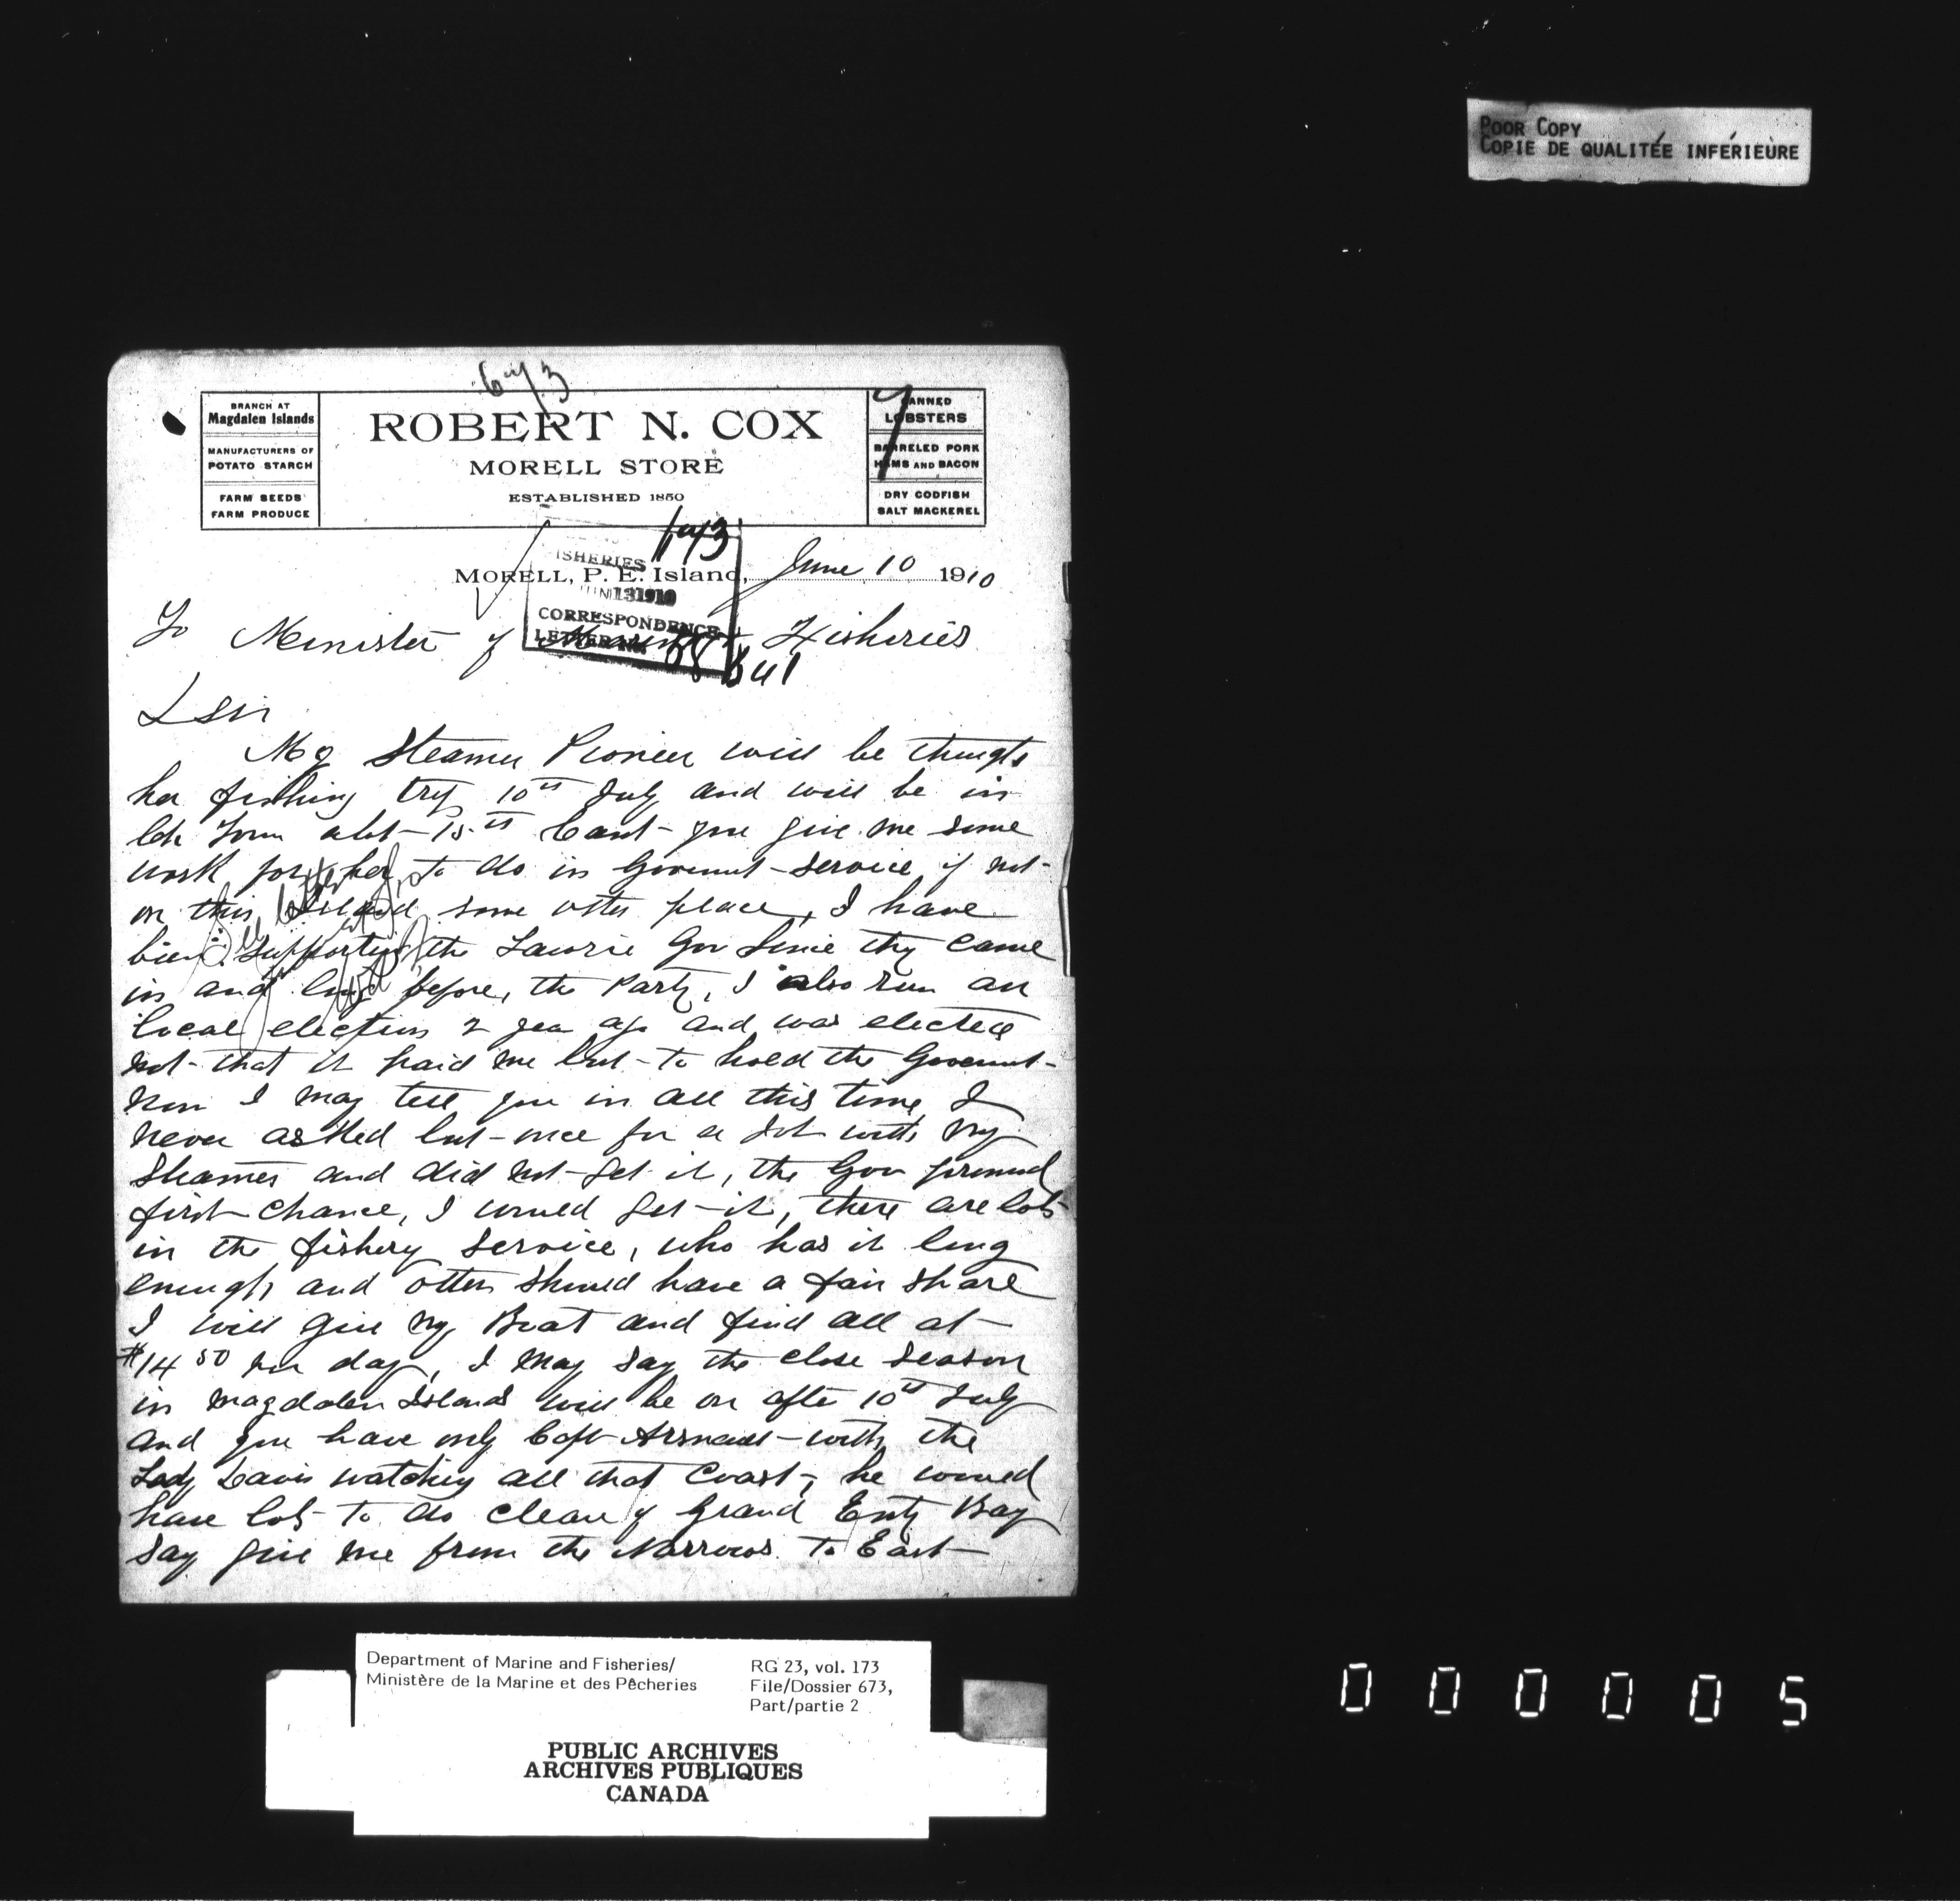 POOR COPY
COPIE DE QUALITÉE INFÉRIEURE
673
BRANCH AT
Magdalen Islands
MANUFACTURERS OF
POTATO STARCH
FARM SEEDS
FARM PRODUCE
ROBERT N. COX
MORELL STORE
ESTABLISHED 1850
CANNED
LOBSTERS
BARRELED PORK
HAMS AND BACON
DRY CODFISH
SALT MACKEREL
673
FISHERIES
JUN 13 1910
CORRESPONDENCE
LETTER No.
MORELL, P. E. Island, June 10 1910
To Minister of Marine & Fisheries
D Sir
My Steamer Pioneer will be through
her fishing try 10th July and will be in
Ch Town abt 15th Cant you give me some
work for her to do in Goverment service if not
on this Island some other place, I have
bien supporting the Laurie Gov Sinie thy came
in and long before, the Party, I also run an
local election 2 year ago and was elected
not that it paid me but to hold the Goverment
Now I may tell you in all this time I
never asked but once for a Job with my
Steamer and did not get it, the Gov promised
first chance, I would get it, there are lots
in the fishery service, who has it long
enough and others should have a fair share
I will give my Boat and find all at
$14 50 per day, I may say the close season
in Magdalen Islands will be on after 10th July
and you have only Capt with the
Lady Davis watching all that Coast, he would
have lots to do clear of Grand Enty Bay
say give me from the Narrows to East
Department of Marine and Fisheries/
Ministère de la Marine et des Pêcheries
RG 23, vol. 173
File/Dossier 673,
Part/partie 2
PUBLIC ARCHIVES
ARCHIVES PUBLIQUES
CANADA
000005